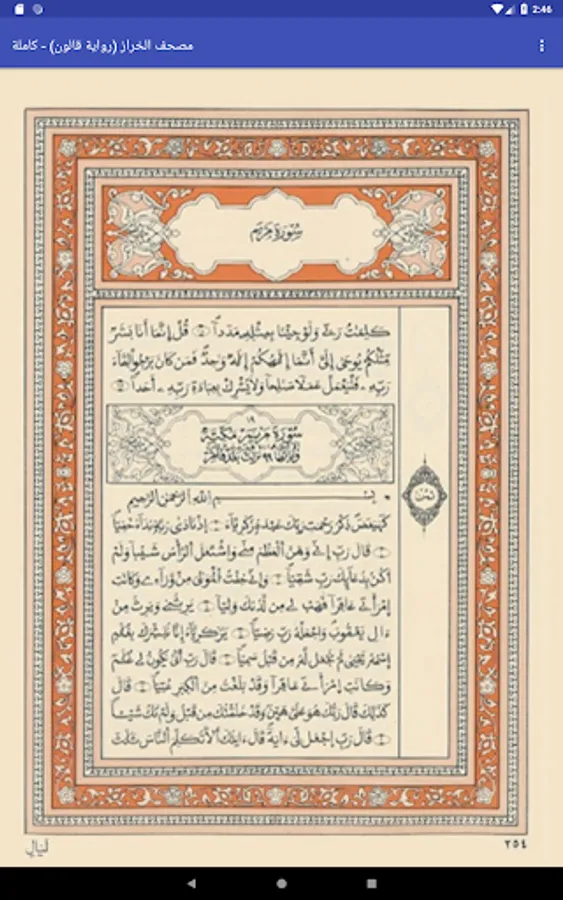 2:46
مصحف الخراز (رواية قالون) - كاملة
سُورَةُ مَرْيَمَ
كَلِمَٰتُ رَبِّے وَلَوْ جِئْنَا بِمِثْلِهِۦ مَدَداً قُلِ اِنَّمَا أَنَا بَشَرٌ
مِّثْلُكُمْ يُوحَىٰ إِلَىَّ أَنَّمَا إِلَٰهُكُمْ إِلَٰهٌ وَٰحِدٌ فَمَن كَانَ يَرْجُواْ لِقَآءَ
رَبِّهِۦ فَلْيَعْمَلْ عَمَلًا صَٰلِحاً وَلَا يُشْرِكْ بِعِبَادَةِ رَبِّهِۦ أَحَداً
١٩
سُورَةُ مَرْيَمَ مَكِّيَّةٌ
وَآيَاتُهَا ٩٩ نَزَلَتْ بَعْدَ فَاطِر
بِسْمِ اِللَّهِ اِلرَّحْمَٰنِ اِلرَّحِيمِ
كَهيعَصَ ذِكْرُ رَحْمَتِ رَبِّكَ عَبْدَهُۥ زَكَرِيَّآءَ إِذْ نَادَىٰ رَبَّهُۥ نِدَآءً خَفِيّاً
قَالَ رَبِّ إِنِّے وَهَنَ اَلْعَظْمُ مِنِّے وَاشْتَعَلَ اَلرَّأْسُ شَيْباً وَلَمْ
أَكُنۢ بِدُعَآئِكَ رَبِّ شَقِيّاً وَإِنِّے خِفْتُ اُلْمَوَٰلِىَ مِنْ وَّرَآءِے وَكَانَتِ
اِمْرَأَتِے عَاقِراً فَهَبْ لِے مِن لَّدُنكَ وَلِيّاً يَرِثُنِے وَيَرِثُ مِنْ
ءَالِ يَعْقُوبَ وَاجْعَلْهُ رَبِّ رَضِيّاً يَٰزَكَرِيَّآءُ إِنَّا نُبَشِّرُكَ بِغُلَٰمٍ
اِسْمُهُۥ يَحْيَىٰ لَمْ نَجْعَل لَّهُۥ مِن قَبْلُ سَمِيّاً قَالَ رَبِّ أَنَّىٰ يَكُونُ لِے غُلَٰمٌ
وَكَانَتِ اِمْرَأَتِے عَاقِراً وَقَدْ بَلَغْتُ مِنَ اَلْكِبَرِ عُتِيّاً قَالَ
كَذَٰلِكَ قَالَ رَبُّكَ هُوَ عَلَىَّ هَيِّنٌ وَقَدْ خَلَقْتُكَ مِن قَبْلُ وَلَمْ تَكُ شَيْـٔاً
قَالَ رَبِّ اِجْعَل لِّىَ ءَايَةً قَالَ ءَايَتُكَ أَلَّا تُكَلِّمَ اَلنَّاسَ ثَلَٰثَ
ثمن
لَيَالٍ
٢٥٤